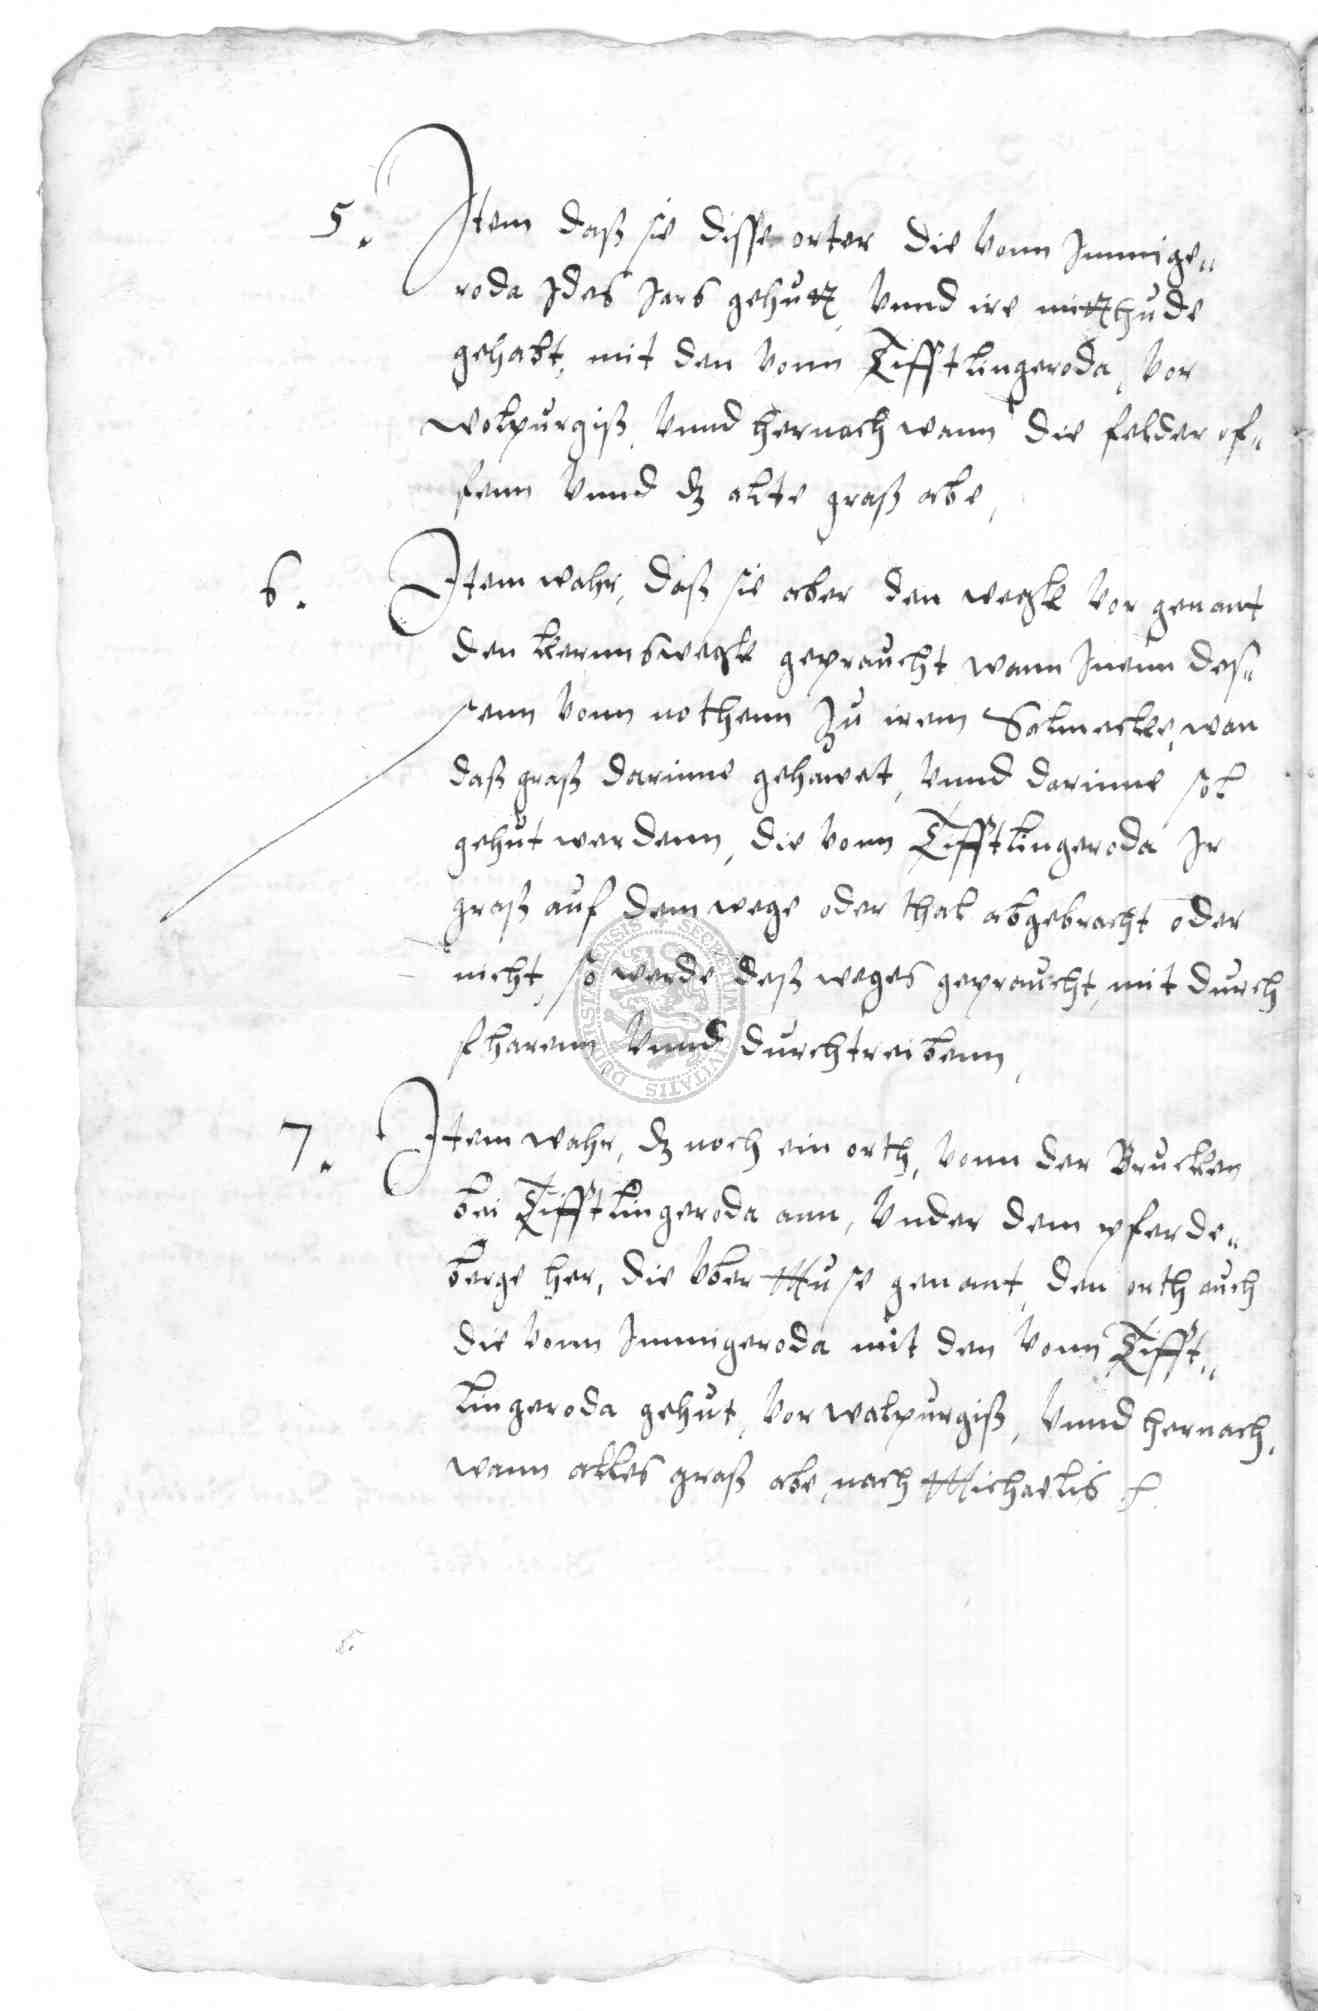 5. Item daß sie disse orter die vonn Immige„
roda Ides Jars gehutt, vnnd ire mitthude
gehabt, mit den vonn Tifftlingeroda, vor
wolpurgiß, vnnd hernach wann die felder of„
fenn vnnd dz alte graß abe,
6. Item wahr, daß sie aber den wegk vor genant
den kernnswegk gepraucht wann Inenn des„
senn vonn nothenn zu irem Salmecke, wan
daß graß darinne gehawet, vnnd darinne sol
gehut werdenn, die vonn Tifftlingeroda Ir
graß auf dem wege oder thal abgebracht oder
nicht, so werde deß weges gepraucht, mit durch
fharenn vnnd durchtreibenn,
7. Item wahr, dz noch ein orth, vonn der Brucken
bei Tifftlingeroda ann, vnder dem pferde„
berge her, die vber Huse genant, den orth auch
die vonn Immigeroda mit den vonn Tifft„
lingeroda gehut, vor walpurgiß, vnnd hernach,
wann alles graß abe, nach Michaelis
SECRETUM CIVITATIS DUDERSTADENSIS